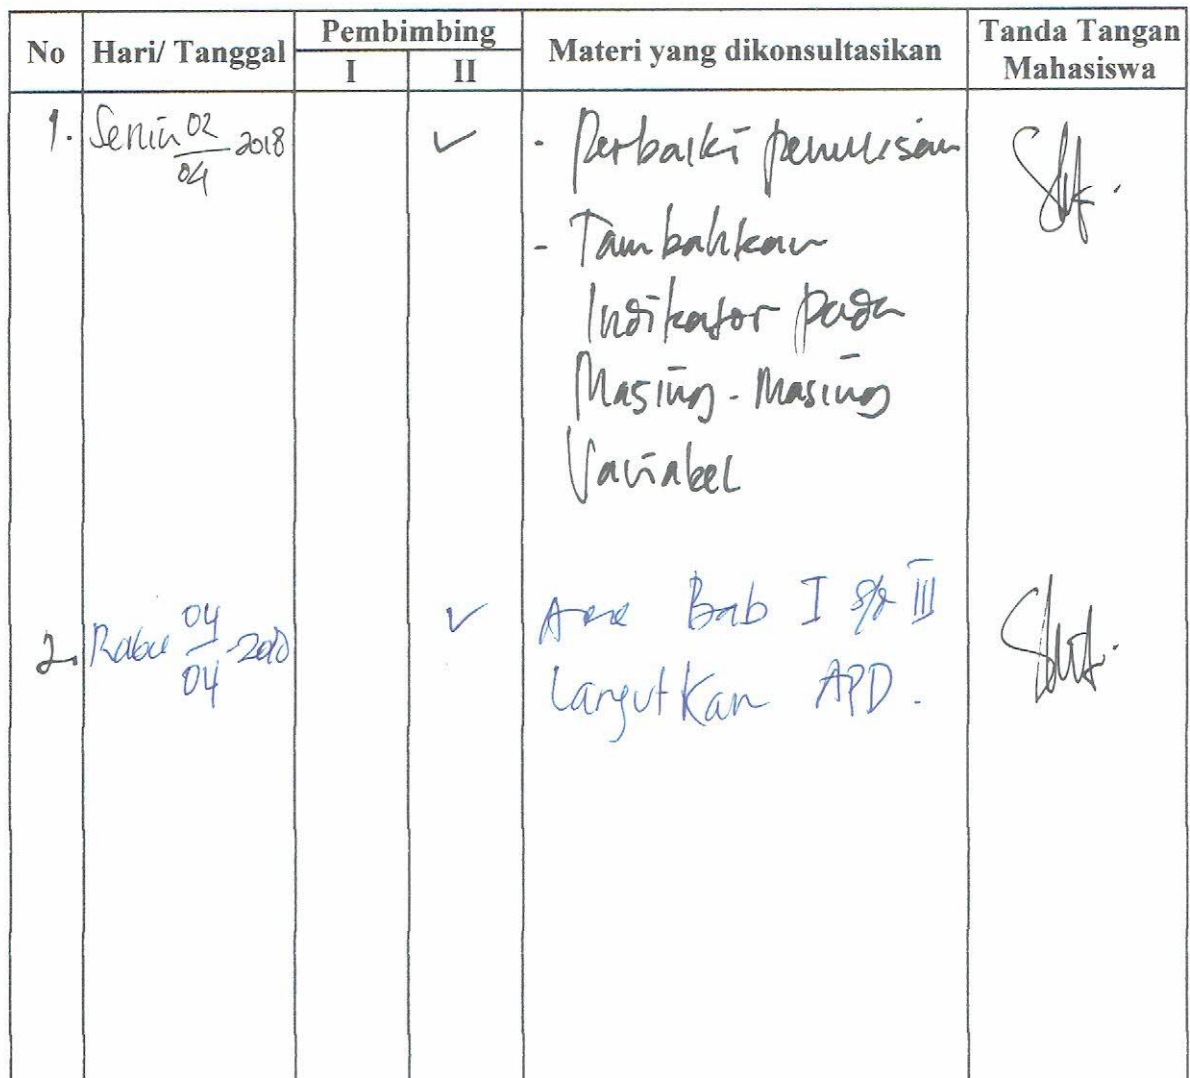 No Hari/ Tanggal Pembimbing Materi yang dikonsultasikan Tanda Tangan Mahasiswa
I II
1. Senin 02/04 2018 ✓ - Perbaiki penulisan
- Tambahkan
Indikator pada
Masing-Masing
Variabel
2. Rabu 04/04 ✓ Acc Bab I s/d III
Lanjutkan APD.